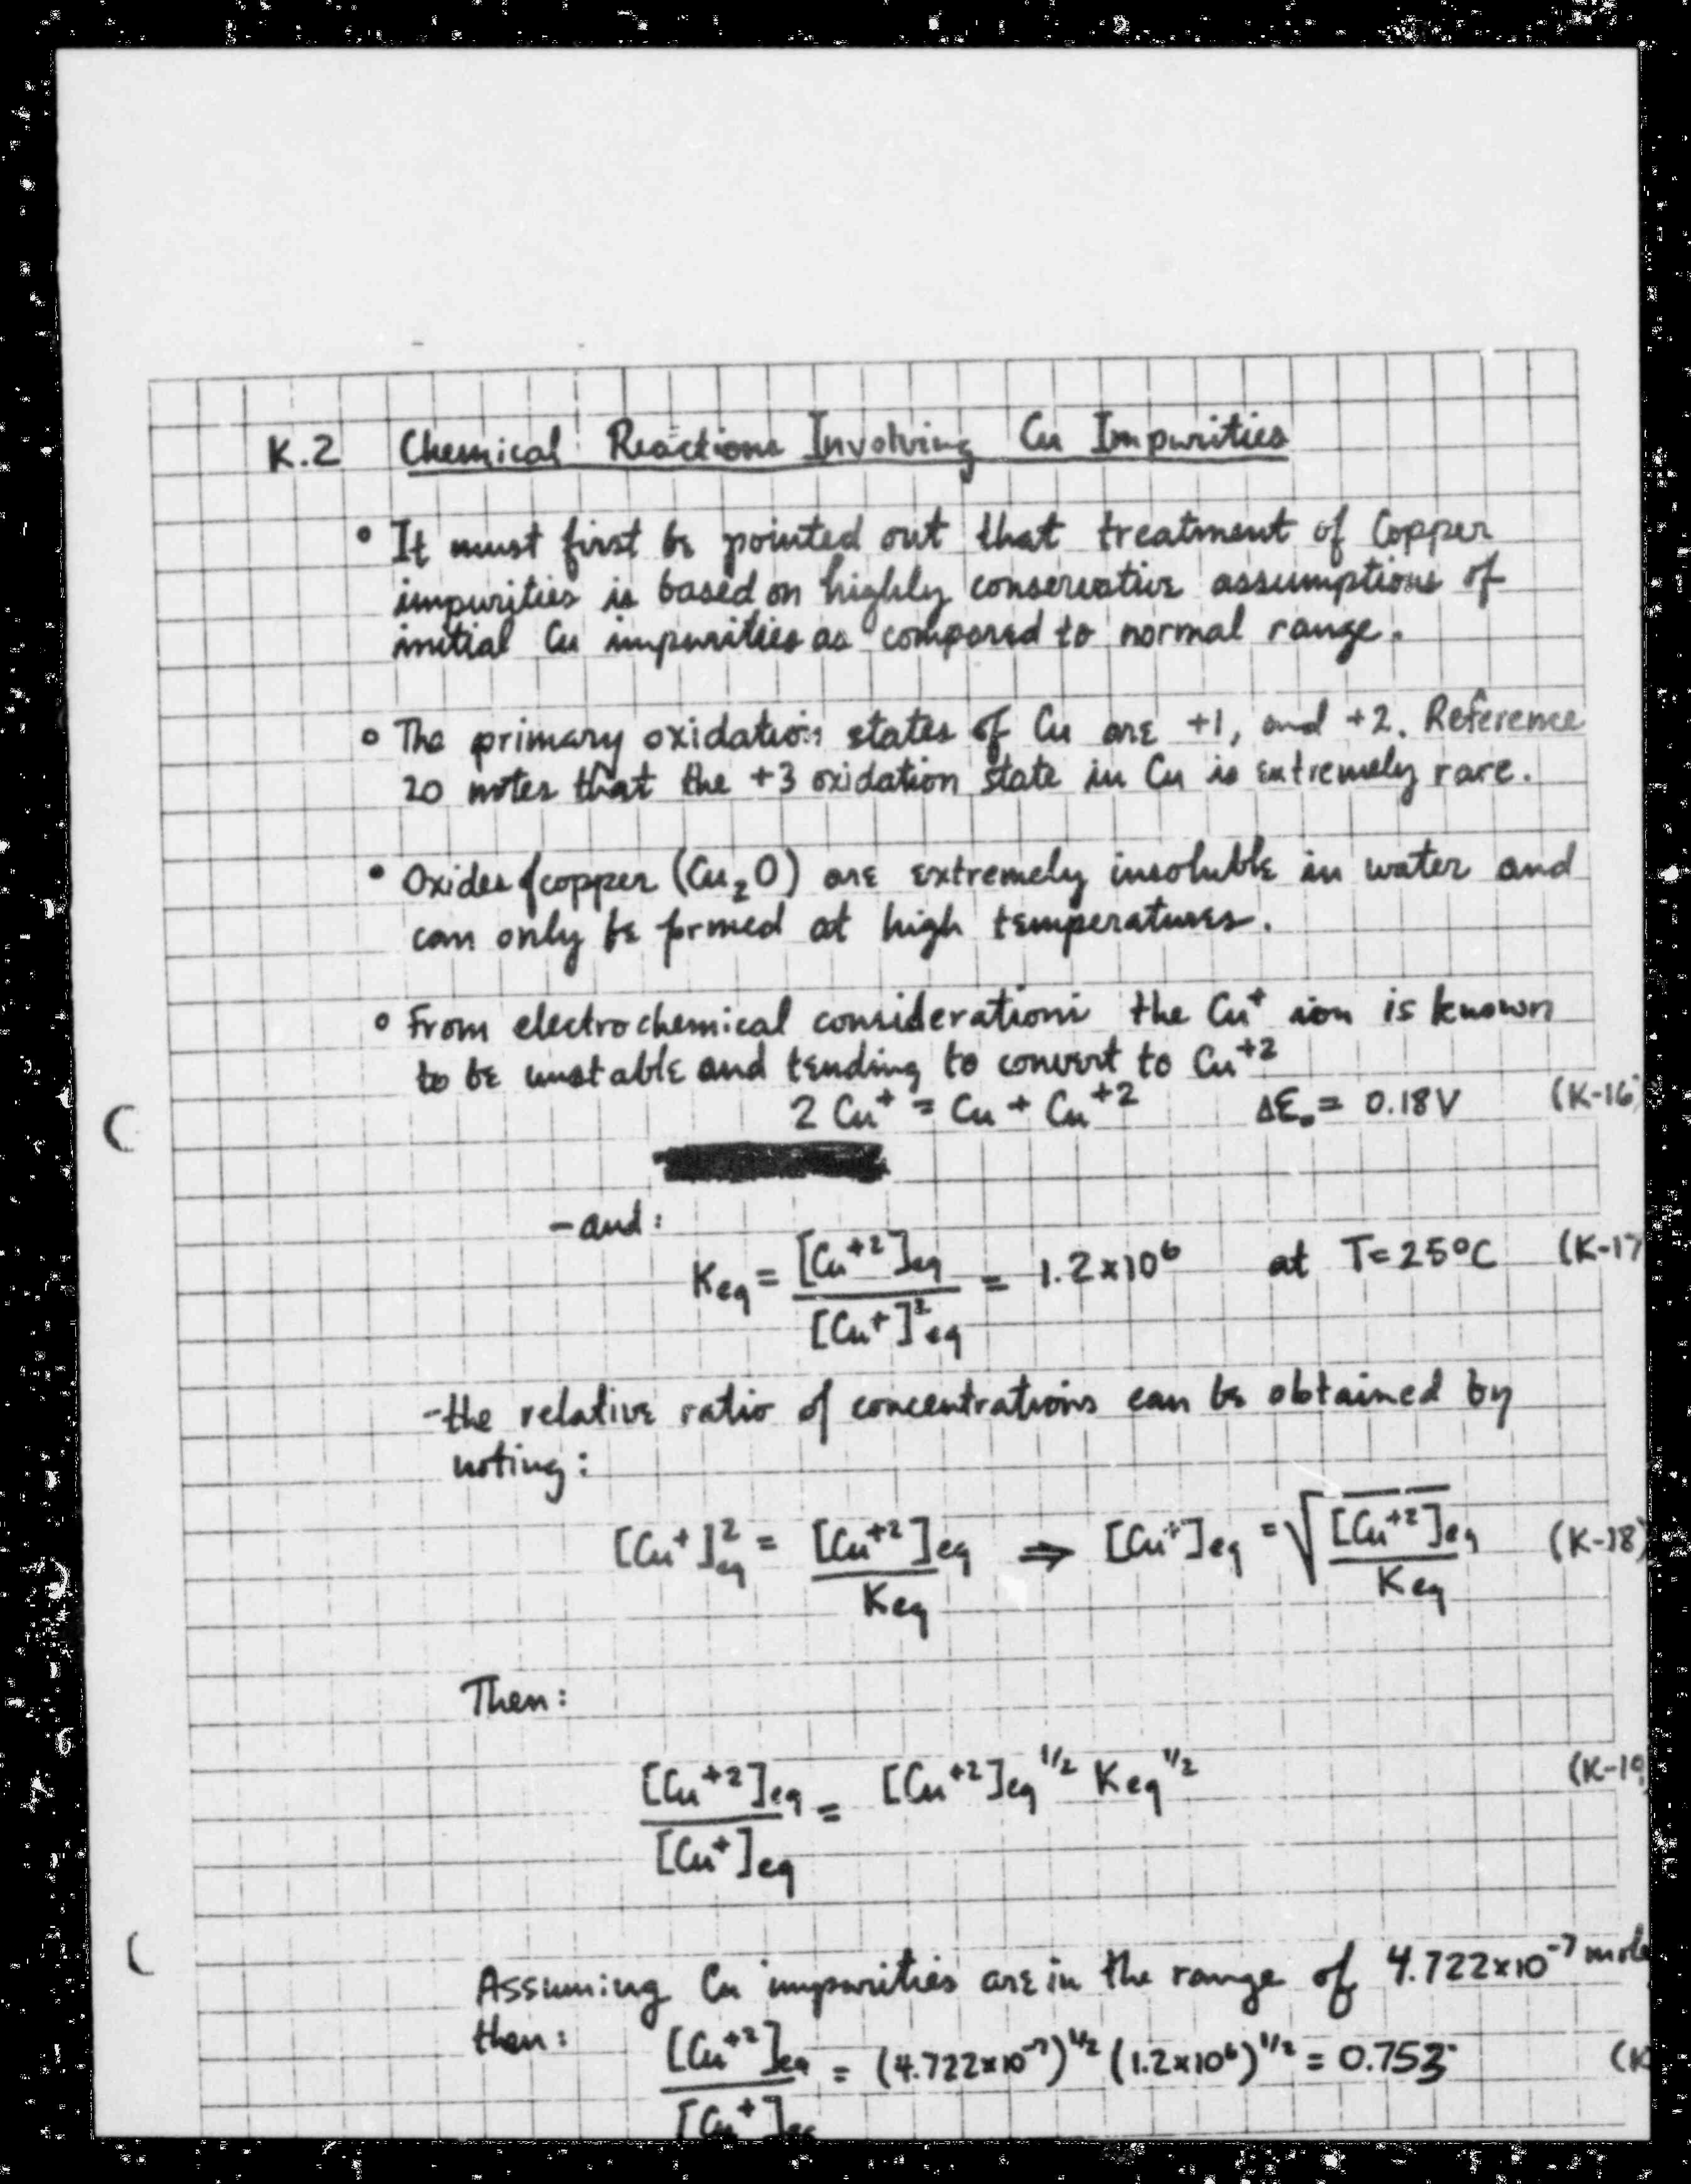 K.2 Chemical Reactions Involving Cu Impurities
° It must first be pointed out that treatment of Copper
impurities is based on highly conservative assumptions of
initial Cu impurities as compared to normal range.
° The primary oxidation states of Cu are +1, and +2. Reference
20 notes that the +3 oxidation state in Cu is extremely rare.
° Oxides of copper (Cu₂O) are extremely insoluble in water and
can only be formed at high temperatures.
° From electrochemical considerations the Cu⁺ ion is known
to be unstable and tending to convert to Cu⁺²
2 Cu⁺ = Cu + Cu⁺² ΔE₀ = 0.18V (K-16)
- and:
Keq = [Cu⁺²]eq / [Cu⁺]²eq = 1.2×10⁶ at T=25°C (K-17
- the relative ratio of concentrations can be obtained by
noting:
[Cu⁺]²eq = [Cu⁺²]eq / Keq ⇒ [Cu⁺]eq = √([Cu⁺²]eq / Keq) (K-18)
Then:
[Cu⁺²]eq / [Cu⁺]eq = [Cu⁺²]eq^1/2 Keq^1/2 (K-19
Assuming Cu impurities are in the range of 4.722×10⁻⁷ mole
then: [Cu⁺²]eq / [Cu⁺]eq = (4.722×10⁻⁷)^1/2 (1.2×10⁶)^1/2 = 0.753 (K